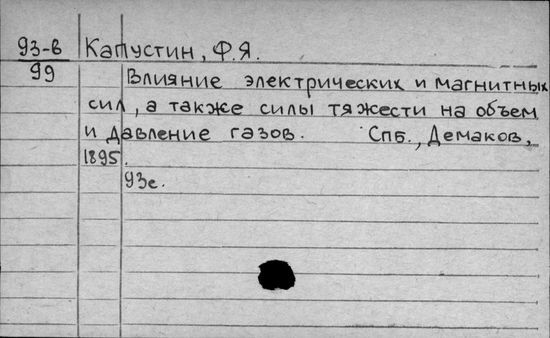 93-в Капустин, Ф.Я.
99 Влияние электрических и магнитных
сил, а также силы тяжести на объем
и давление газов. Спб., Демаков,
1895.
93с.